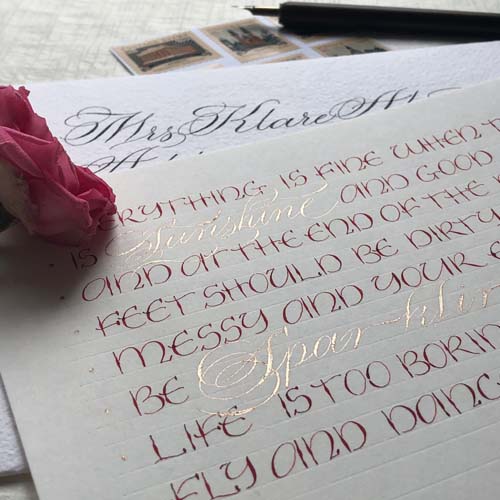 Mrs Klare
EVERYTHING IS FINE WHEN
IS Sunshine AND GOOD
AND AT THE END OF THE
FEET SHOULD BE DIRTY
MESSY AND YOUR
BE Sparkling
LIFE IS TOO BORING
FLY AND DANCE